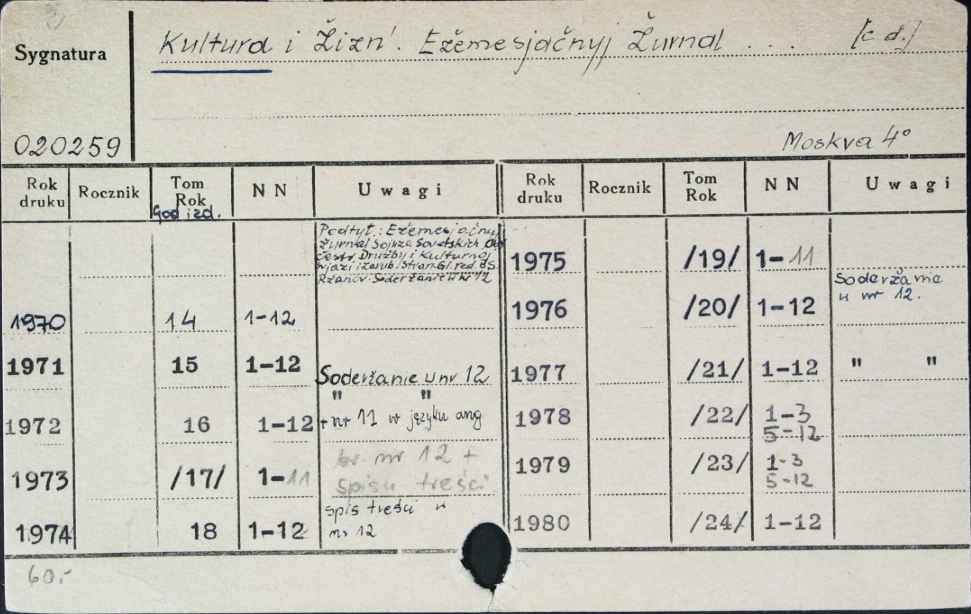 Sygnatura
Kultura i Žizn'. Ežemesjačnyj Žurnal . . . [c d.]
020259
Moskva 4°
Rok druku Rocznik Tom Rok N N Uwagi Rok druku Rocznik Tom Rok N N Uwagi
God izd.
Podtyt.: Ežemesjačnyj
Žurnal Sojuza Sovetskich
Družby i Kulturnoj
svjazi i zarub. stran. Gl. red.
Ržanov. Soderžanie v nr 12
1970 14 1-12
1971 15 1-12 Soderžanie v nr 12
1972 16 1-12 " "
+ nr 11 w języku ang
1973 /17/ 1-11 br. nr 12 +
spisu treści
1974 18 1-12 spis treści w
nr 12
1975 /19/ 1-11
1976 /20/ 1-12 Soderžanie
v nr 12.
1977 /21/ 1-12 " "
1978 /22/ 1-3
5-12
1979 /23/ 1-3
5-12
1980 /24/ 1-12
60.-